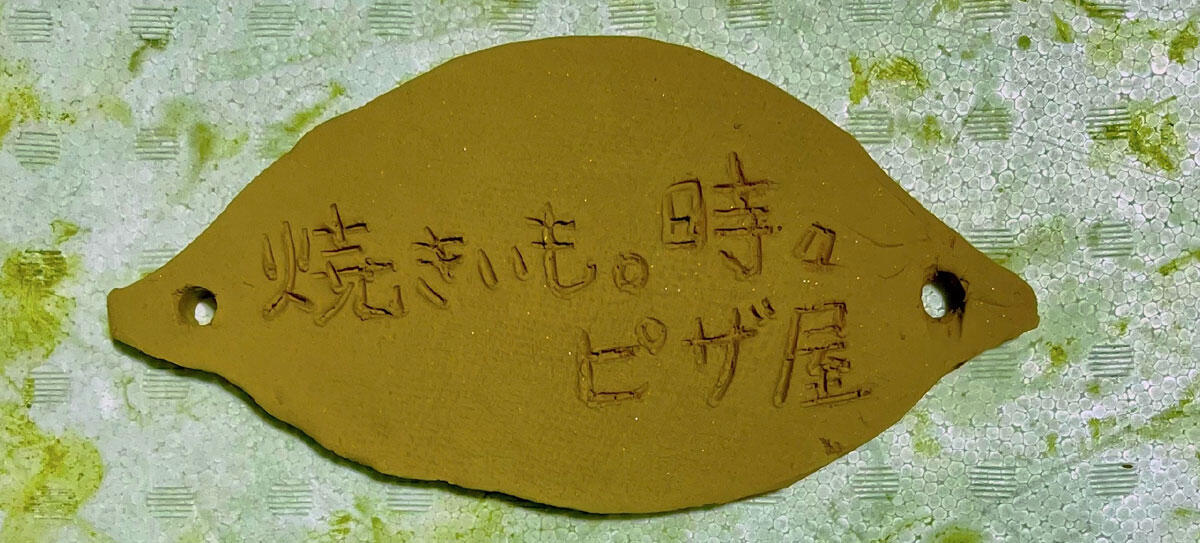 焼きいも。時々
ピザ屋